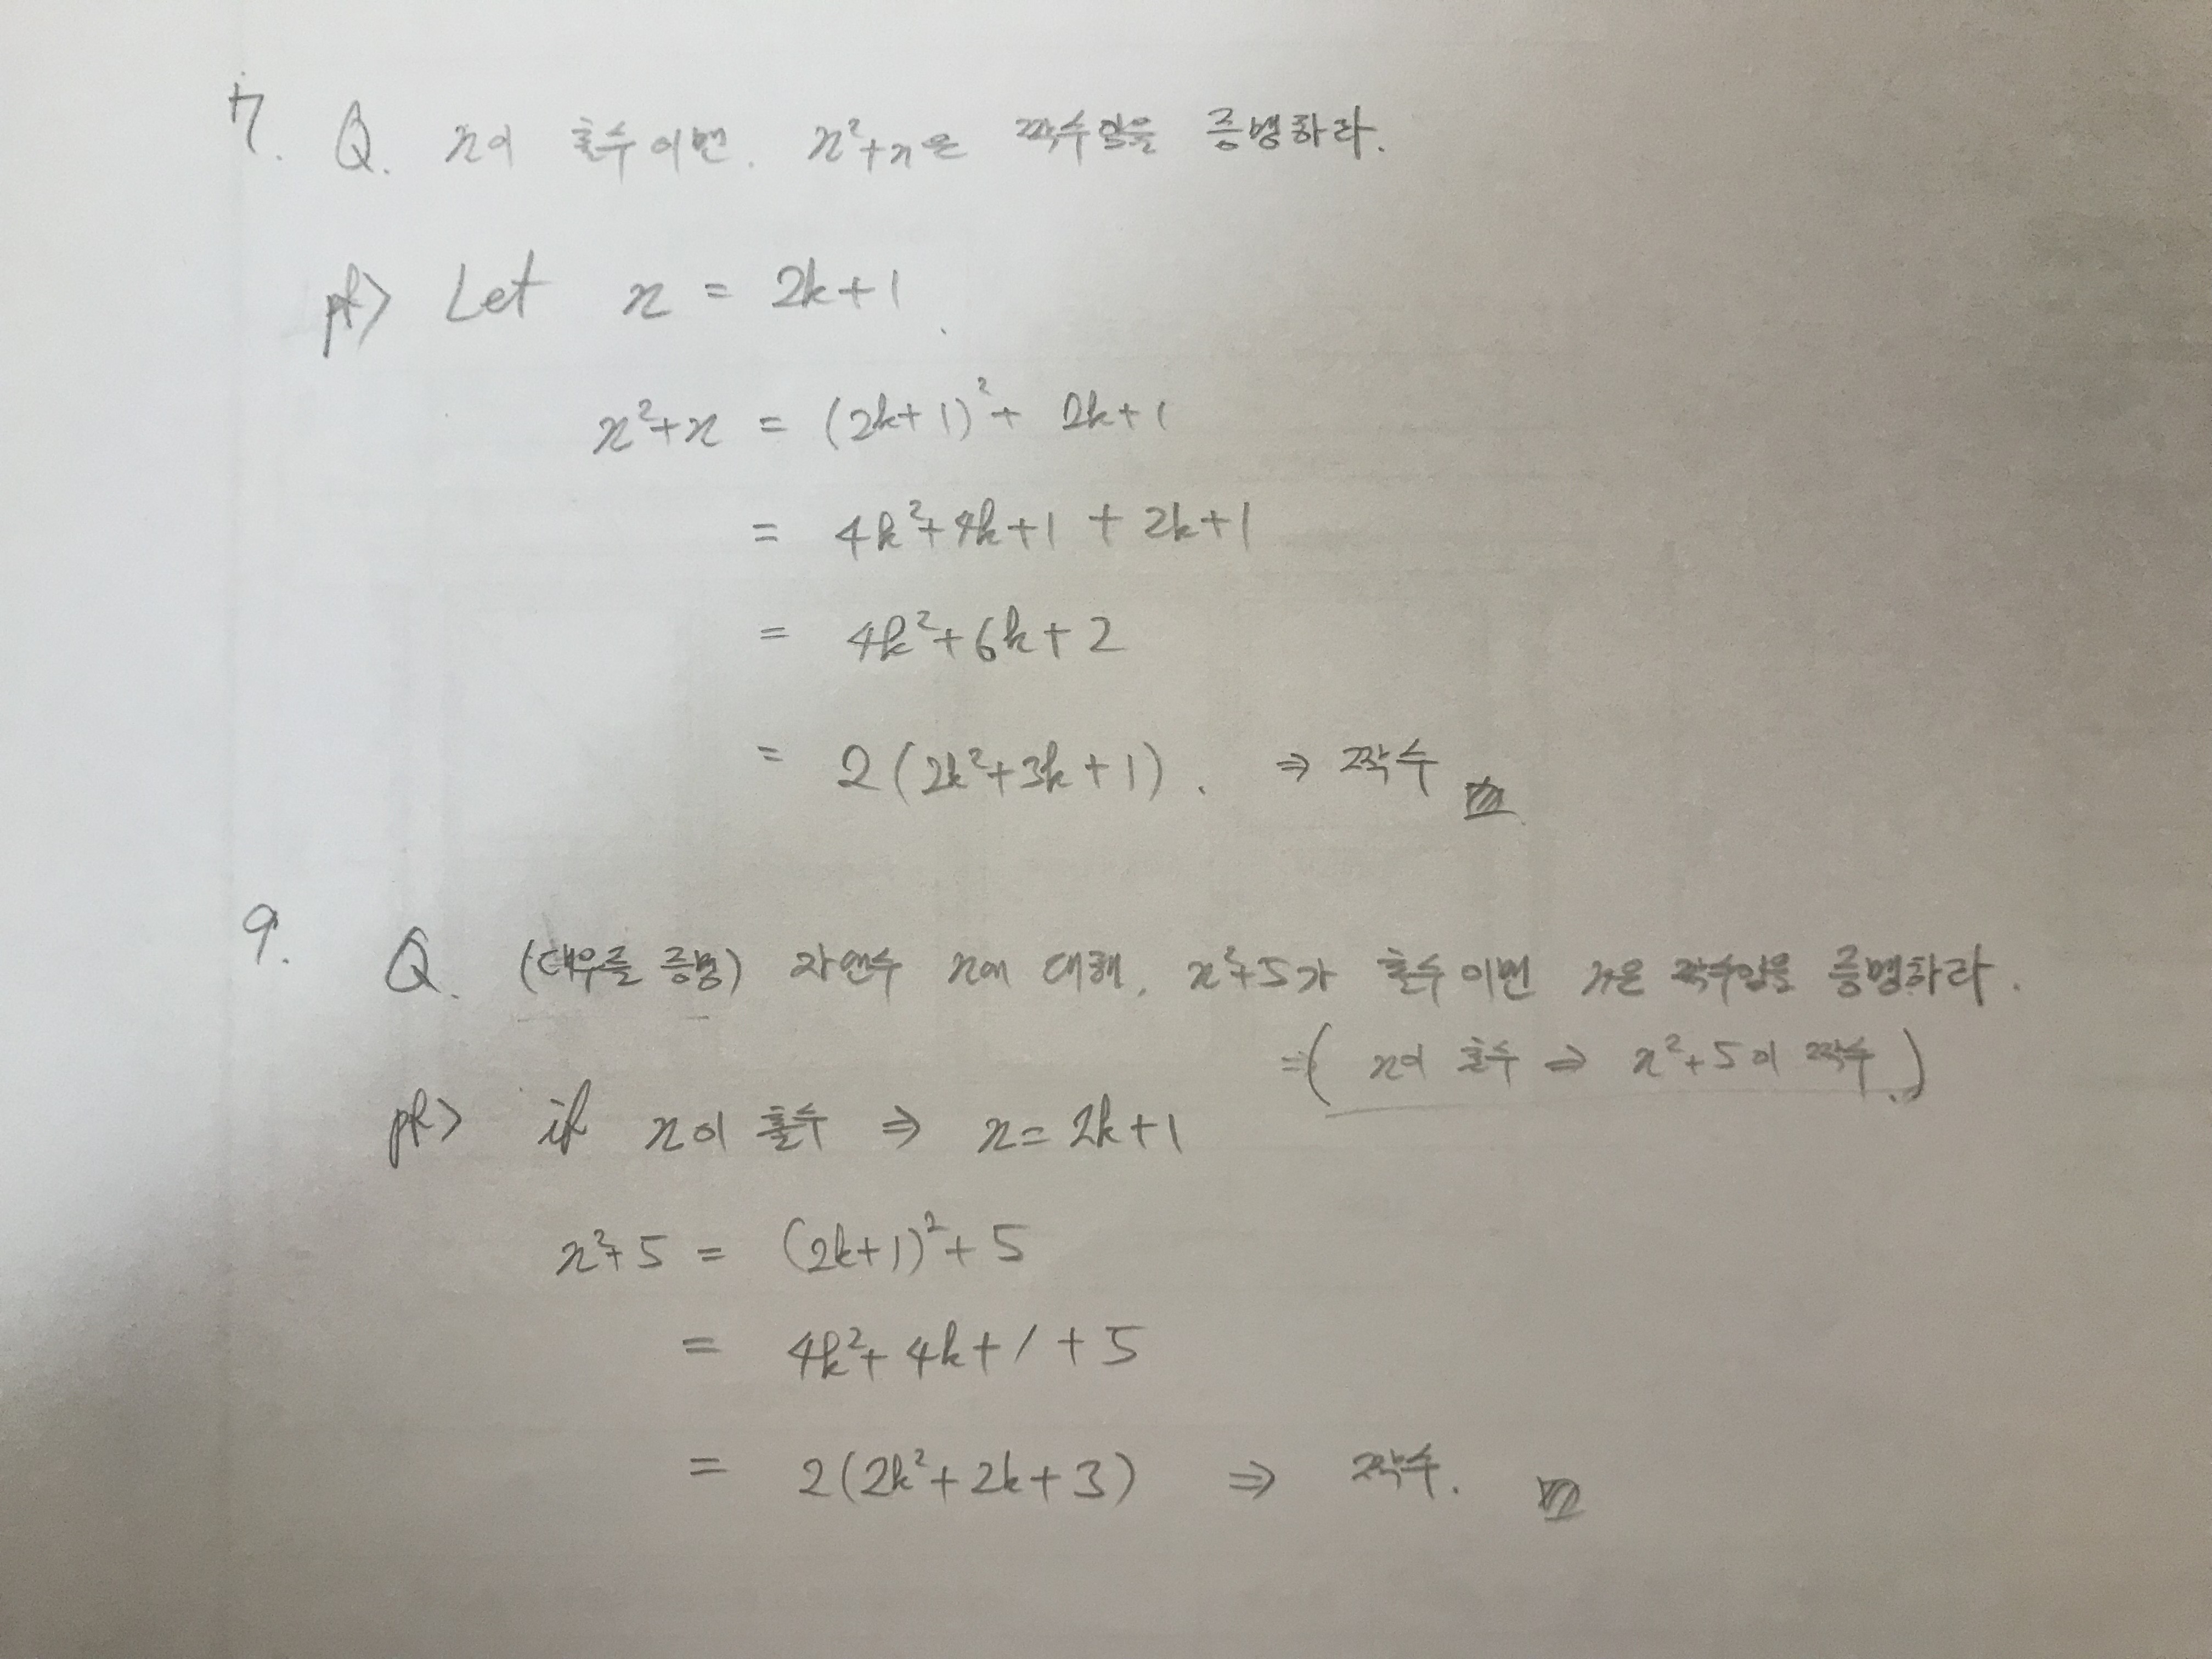 7. Q. x이 홀수이면. x²+x은 짝수임을 증명하라.
pf> Let x = 2k+1.
x²+x = (2k+1)²+ 2k+1
= 4k²+4k+1 + 2k+1
= 4k²+6k+2
= 2(2k²+3k+1). ⇒ 짝수
9. Q. (대우를 증명) 자연수 x에 대해, x²+5가 홀수이면 x은 짝수임을 증명하라.
=( x이 홀수 ⇒ x²+5이 짝수.)
pf> if x이 홀수 ⇒ x=2k+1
x²+5 = (2k+1)²+5
= 4k²+4k+1+5
= 2(2k²+2k+3) ⇒ 짝수.